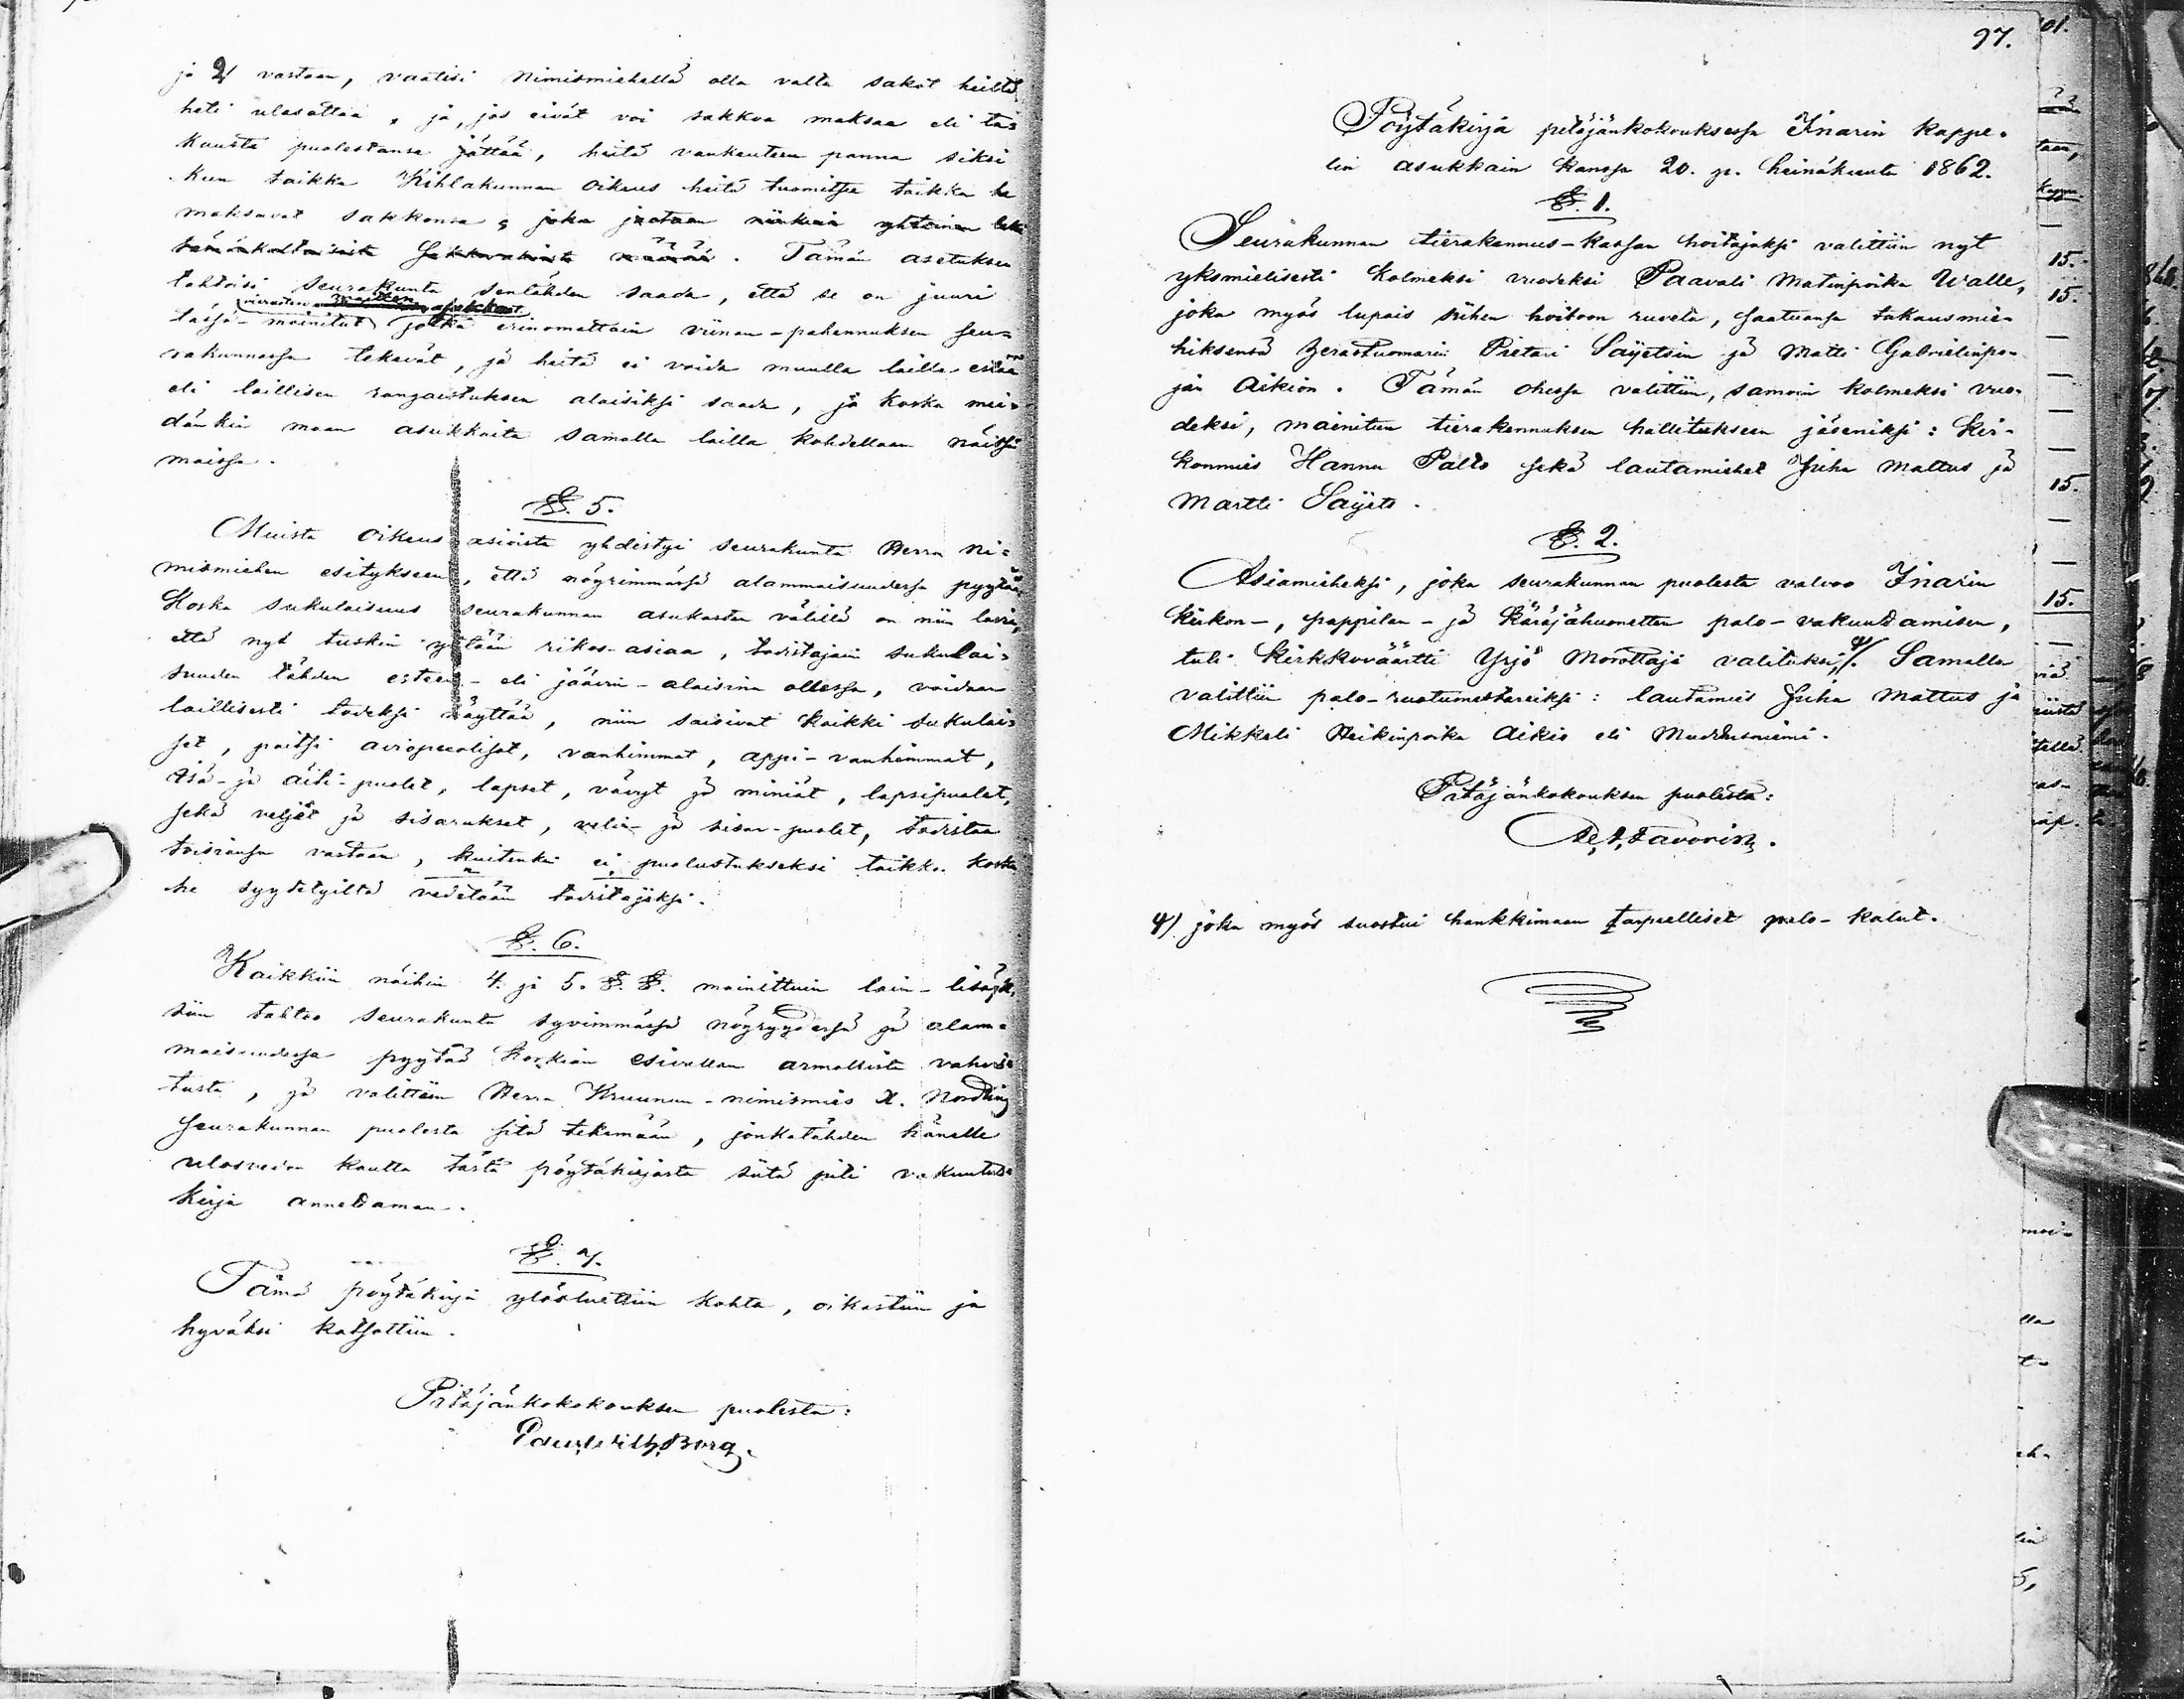 ja 2/ vastaan, vaatisi Nimismiehellä olla valta sakot heiltä
heti ulosottaa, ja, jos eivät voi sakkoa maksaa eli ta-
kausta puolestansa jättää, heitä vankeuteen panna siksi
kun taikka Kihlakunnan oikeus heitä tuomitsee taikka he
maksavat sakkonsa, joka jaetaan niinkuin yhteinen laki
. Tämän asetuksen
tahtoisi seurakunta sentähden saada, että se on juuri
vierasten asukkaat
tässä-mainitut jotka erinomattain viinan-pahennuksen seu-
rakunnassa tekevät, ja heitä ei voida muulla lailla estää
eli laillisen rangaistuksen alaisiksi saada, ja koska mei-
dänkin maan asukkaita samalla lailla kohdellaan näissä
maissa.
§. 5.
Muista oikeus asioista yhdistyi seurakunta Herra Ni-
mismiehen esitykseen, että nöyrimmässä alammaisuudessa pyytää,
Koska sukulaisuus seurakunnan asukasten välillä on niin lavia,
että nyt tuskin yhtään rikos-asiaa, todistajain sukulai-
suuden tähden esteen- eli jäävin-alaisina ollessa, voidaan
laillisesti todeksi näyttää, niin saisivat kaikki sukulai-
set, paitsi aviopuolisot, vanhimmat, appi-vanhimmat,
isä- ja äiti-puolet, lapset, vävyt ja miniät, lapsipuolet,
sekä veljet ja sisarukset, veli- ja sisar-puolet, todistaa
toisiansa vastaan, kuitenki ei puolustukseksi taikka koska
he syydetyiltä vedetään todistajiksi.
§. 6.
Kaikkiin näihin 4. ja 5. §. §. mainittuin lain-lisäyk-
siin tahtoo seurakunta syvimmässä nöyryydessä ja alam-
maisuudessa pyytää Korkian esivallan armollista vahvis-
tusta, ja valittiin Herra Kruunun-nimismies X. Nordling
seurakunnan puolesta sitä tekemään, jonkatähden hänelle
ulosvedon kautta tästä pöytäkirjasta siitä piti vakuutus-
kirja annettaman.
§. 7.
Tämä pöytäkirja ylösluettiin kohta, oikastiin ja
hyväksi katsottiin.
Pitäjänkokokouksen puolesta:
Borg.
97.
Pöytäkirja pitäjänkokouksessa Inarin kappe-
lin asukkain kanssa 20. p. heinäkuuta 1862.
§. 1.
Seurakunnan tierakennus-kassan hoitajaksi valittiin nyt
yksmielisesti kolmeksi vuodeksi Paavali Matinpoika Walle,
joka myös lupais siihen hoitoon ruveta, saatuansa takausmie-
hiksensä herastuomarin Pietari Saijetsin ja Matti Gabrielinpo-
jan Aikion. Tämän ohessa valittiin, samoin kolmeksi vuo-
deksi, mainitun tierakennuksen hallitukseen jäseniksi: Kir-
konmies Hannu Palto sekä lautamiehet Juha Mattus ja
Martti Saijets.
§. 2.
Asiamieheksi, joka seurakunnan puolesta valvoo Inarin
kirkon-, pappilan- ja käräjähuonetten palo-vakuuttamisen,
tuli Kirkkoväärtti Yrjö Morottaja valituksi 4/. Samalla
valittiin palo-ruotumestareiksi: lautamies Juha Mattus ja
Mikkeli Heikinpoika Aikio eli Muddusniemi.
Pitäjänkokouksen puolesta:
Favorin.
4) joka myös suostui hankkimaan tarpeelliset palo-kalut.